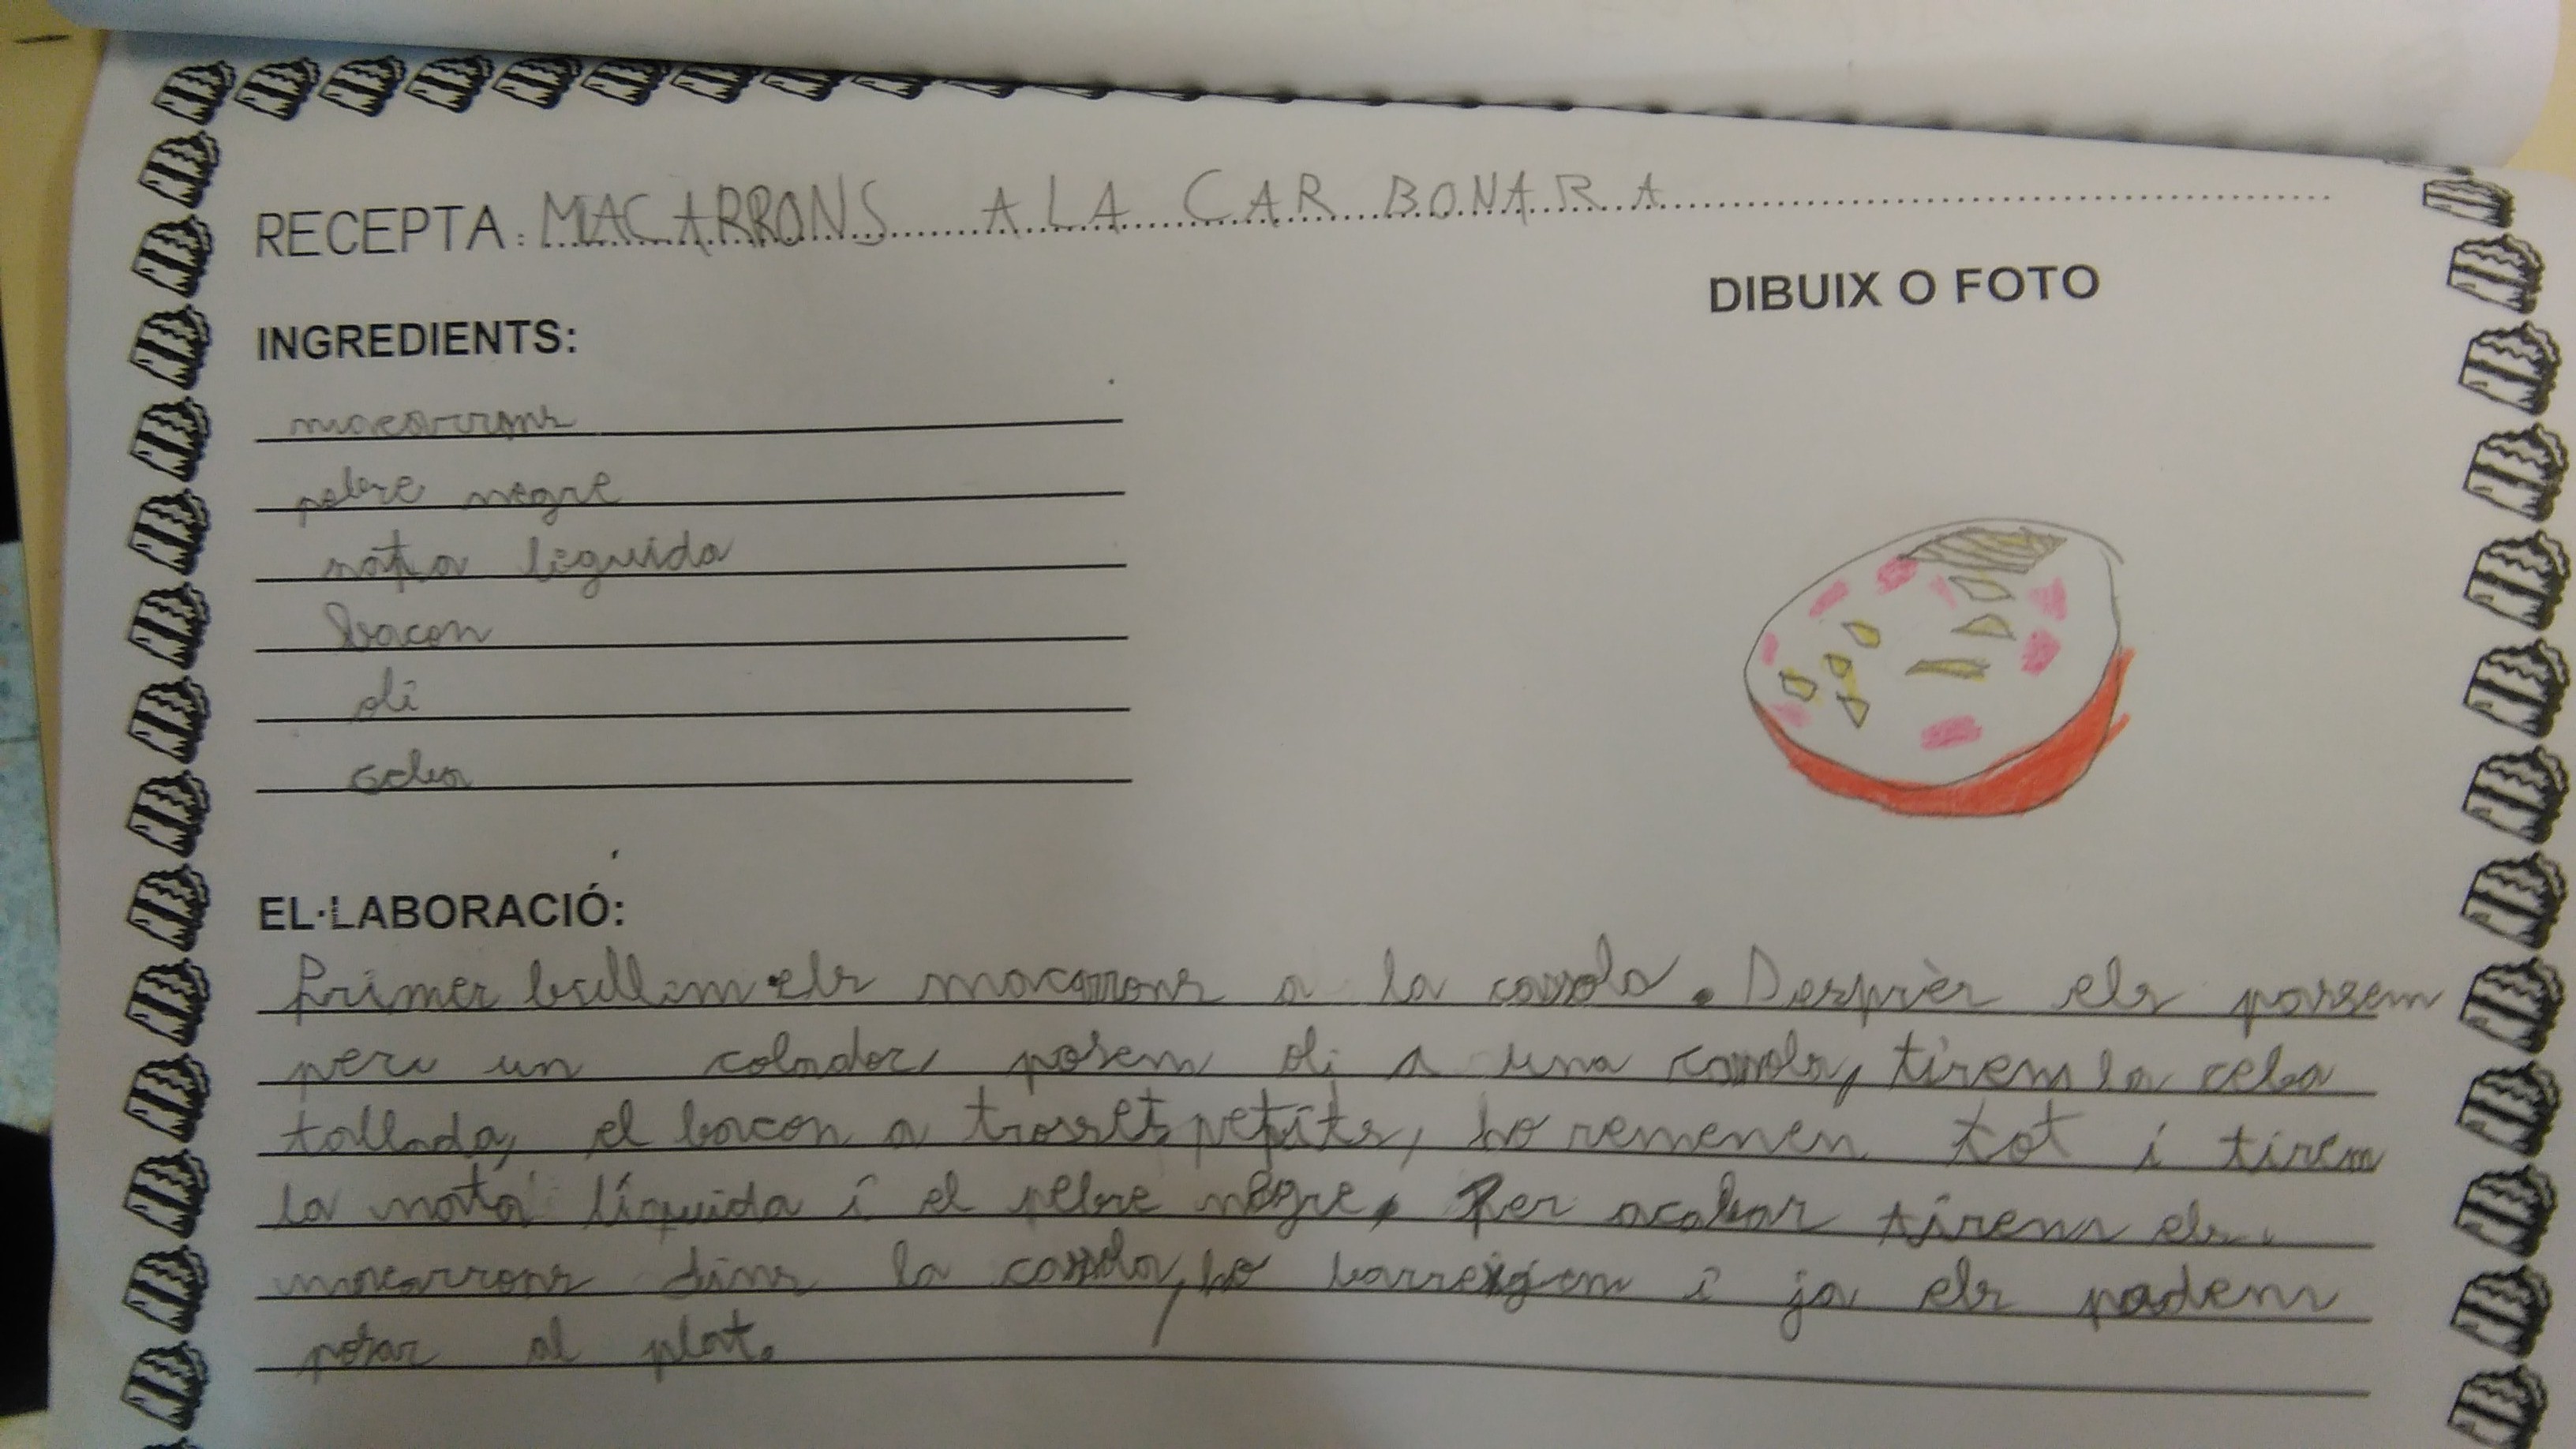 RECEPTA: MACARRONS A LA CARBONARA
DIBUIX O FOTO
INGREDIENTS:
macarrons
pebre negre
nata liquida
bacon
oli
ceba
EL·LABORACIÓ:
Primer bullim els macarrons a la cassola. Desprès els passem
per un colador, posem oli a una cassola, tirem la ceba
tallada, el bacon a trosset petits, ho remenen tot i tirem
la nata líquida i el pebre negre. Per acabar tirem els
macarrons dins la cassola, ho barregem i ja els podem
posar al plat.